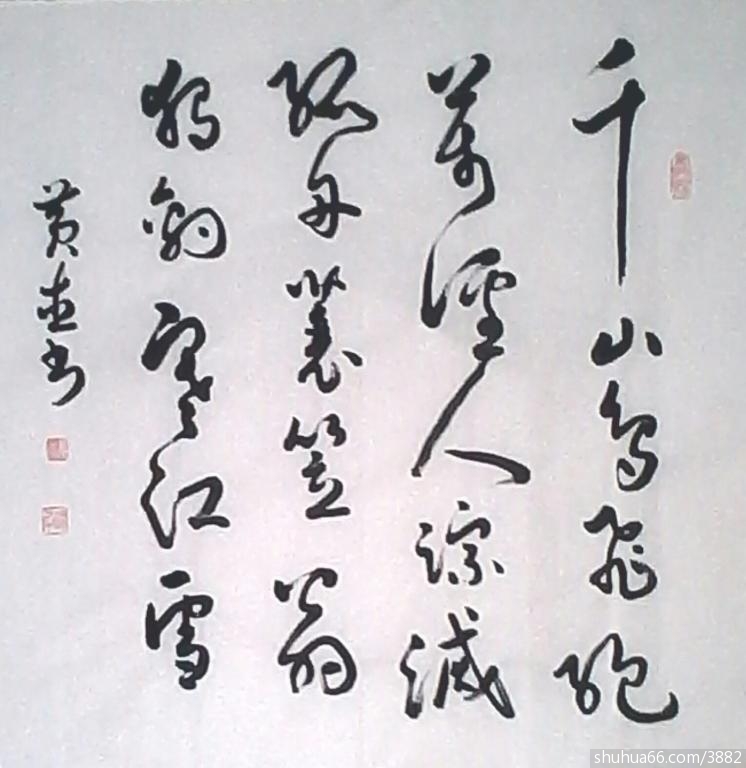 千山鸟飞绝
万径人踪灭
孤舟蓑笠翁
独钓寒江雪
shuhua66.com/3882